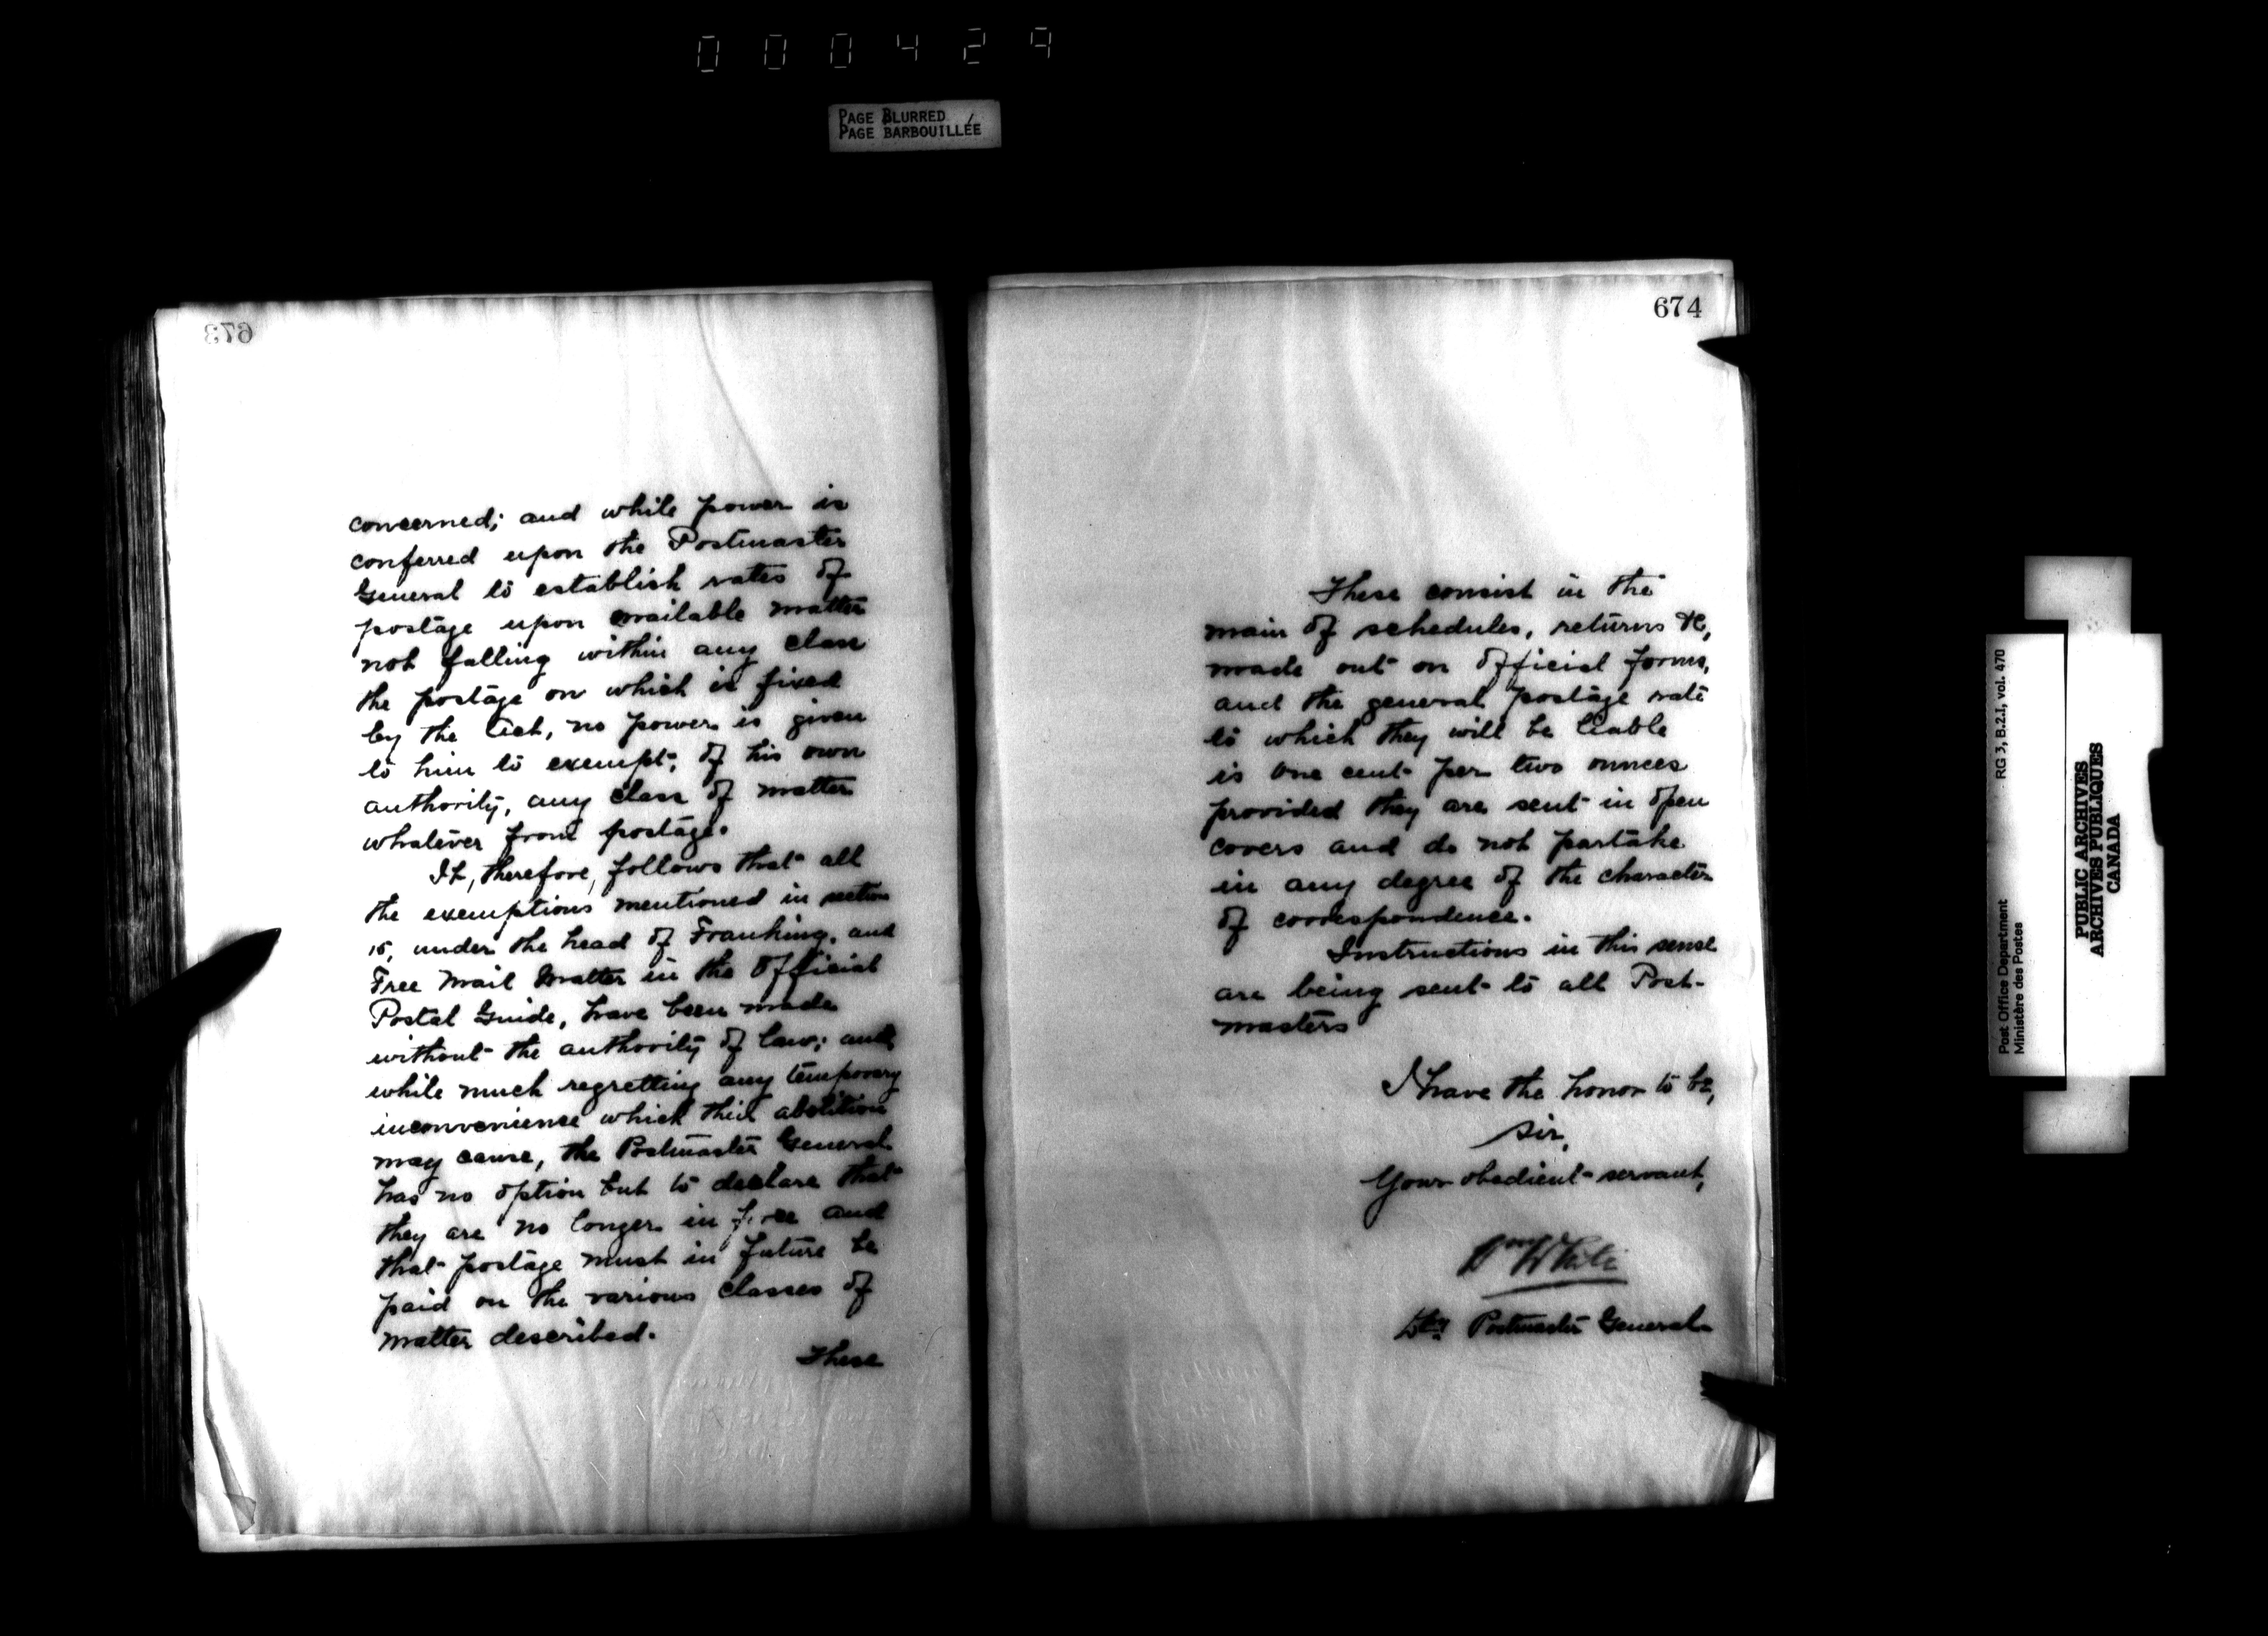 000429
PAGE BLURRED
PAGE BARBOUILLÉE
673
concerned; and while power is
conferred upon the Postmaster
General to establish rates of
postage upon mailable matter
not falling within any class
the postage on which is fixed
by the Act, no power is given
to him to exempt, of his own
authority, any class of matter
whatever from postage.
It, therefore, follows that all
the exemptions mentioned in section
15, under the head of Franking, and
Free Mail Matter in the Official
Postal Guide, have been made
without the authority of law; and,
while much regretting any temporary
inconvenience which their abolition
may cause, the Postmaster General
has no option but to declare that
they are no longer in force and
that postage must in future be
paid on the various classes of
matter described.
These
674
These consist in the
main of schedules, returns &c,
made out on official forms,
and the general postage rate
to which they will be liable
is one cent per two ounces
provided they are sent in open
covers and do not partake
in any degree of the character
of correspondence.
Instructions in this sense
are being sent to all Post-
masters
I have the honor to be,
Sir,
Your obedient servant,
Wm White
Dty Postmaster General
Post Office Department RG 3, B.2.I, vol. 470
Ministère des Postes
PUBLIC ARCHIVES
ARCHIVES PUBLIQUES
CANADA